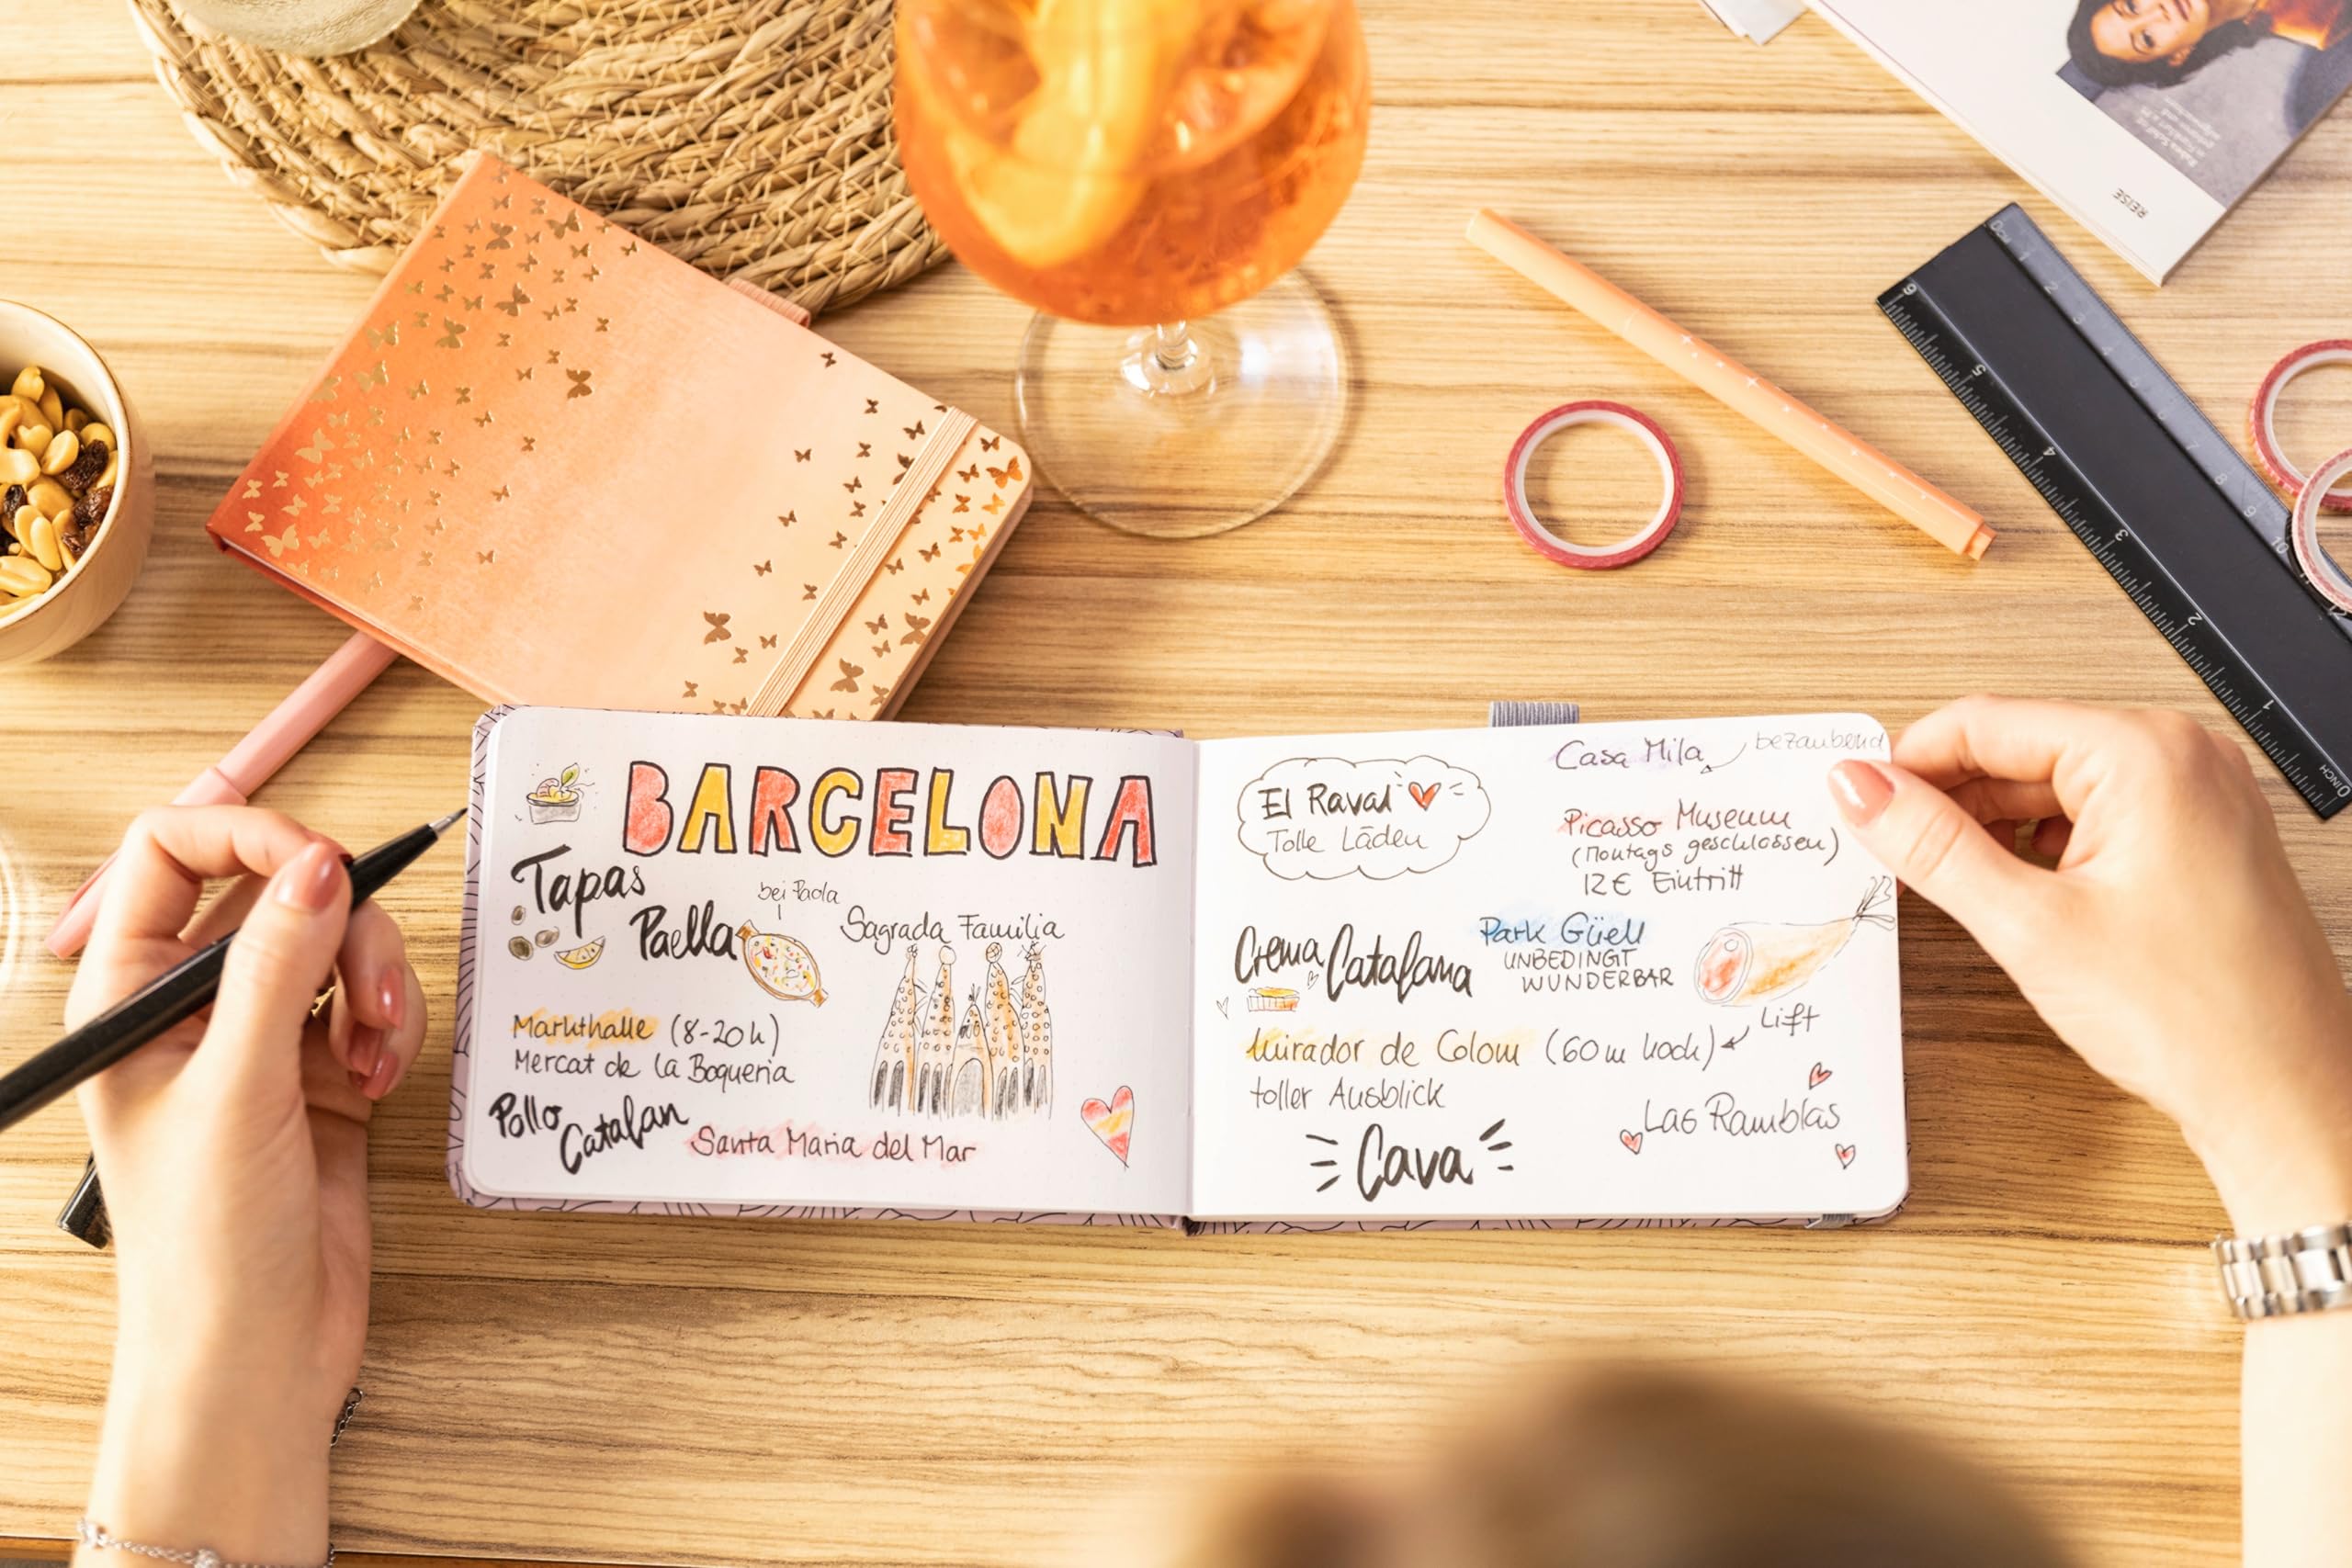 REISE
BARCELONA
Tapas
Paella
bei Paola
Sagrada Familia
Markthalle (8-20h)
Mercat de la Boqueria
Pollo
Catalan
Santa Maria del Mar
El Raval
Tolle Läden
Casa Mila
bezaubernd
Picasso Museum
(Montags geschlossen)
12€ Eintritt
Crema
Catalana
Park Güell
UNBEDINGT
WUNDERBAR
Mirador de Colom (60m hoch)
Lift
toller Ausblick
Las Ramblas
Cava